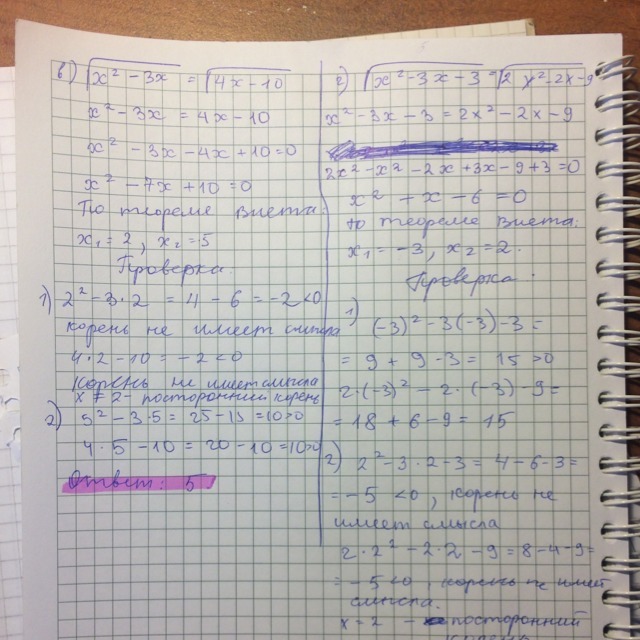 в) √x² - 3x = √4x - 10
x² - 3x = 4x - 10
x² - 3x - 4x + 10 = 0
x² - 7x + 10 = 0
По теореме Виета:
x₁ = 2, x₂ = 5
Проверка:
1) 2² - 3·2 = 4 - 6 = -2 < 0
корень не имеет смысла
4·2 - 10 = -2 < 0
корень не имеет смысла
x = 2 - посторонний корень
2) 5² - 3·5 = 25 - 15 = 10 > 0
4·5 - 10 = 20 - 10 = 10 > 0
Ответ: 5
г) √x² - 3x - 3 = √2x² - 2x - 9
x² - 3x - 3 = 2x² - 2x - 9
2x² - x² - 2x + 3x - 9 + 3 = 0
x² + x - 6 = 0
по теореме Виета:
x₁ = -3, x₂ = 2
Проверка:
1) (-3)² - 3(-3) - 3 =
= 9 + 9 - 3 = 15 > 0
2·(-3)² - 2·(-3) - 9 =
= 18 + 6 - 9 = 15
2) 2² - 3·2 - 3 = 4 - 6 - 3 =
= -5 < 0, корень не
имеет смысла
2·2² - 2·2 - 9 = 8 - 4 - 9 =
= -5 < 0, корень не имеет
смысла.
x = 2 - посторонний